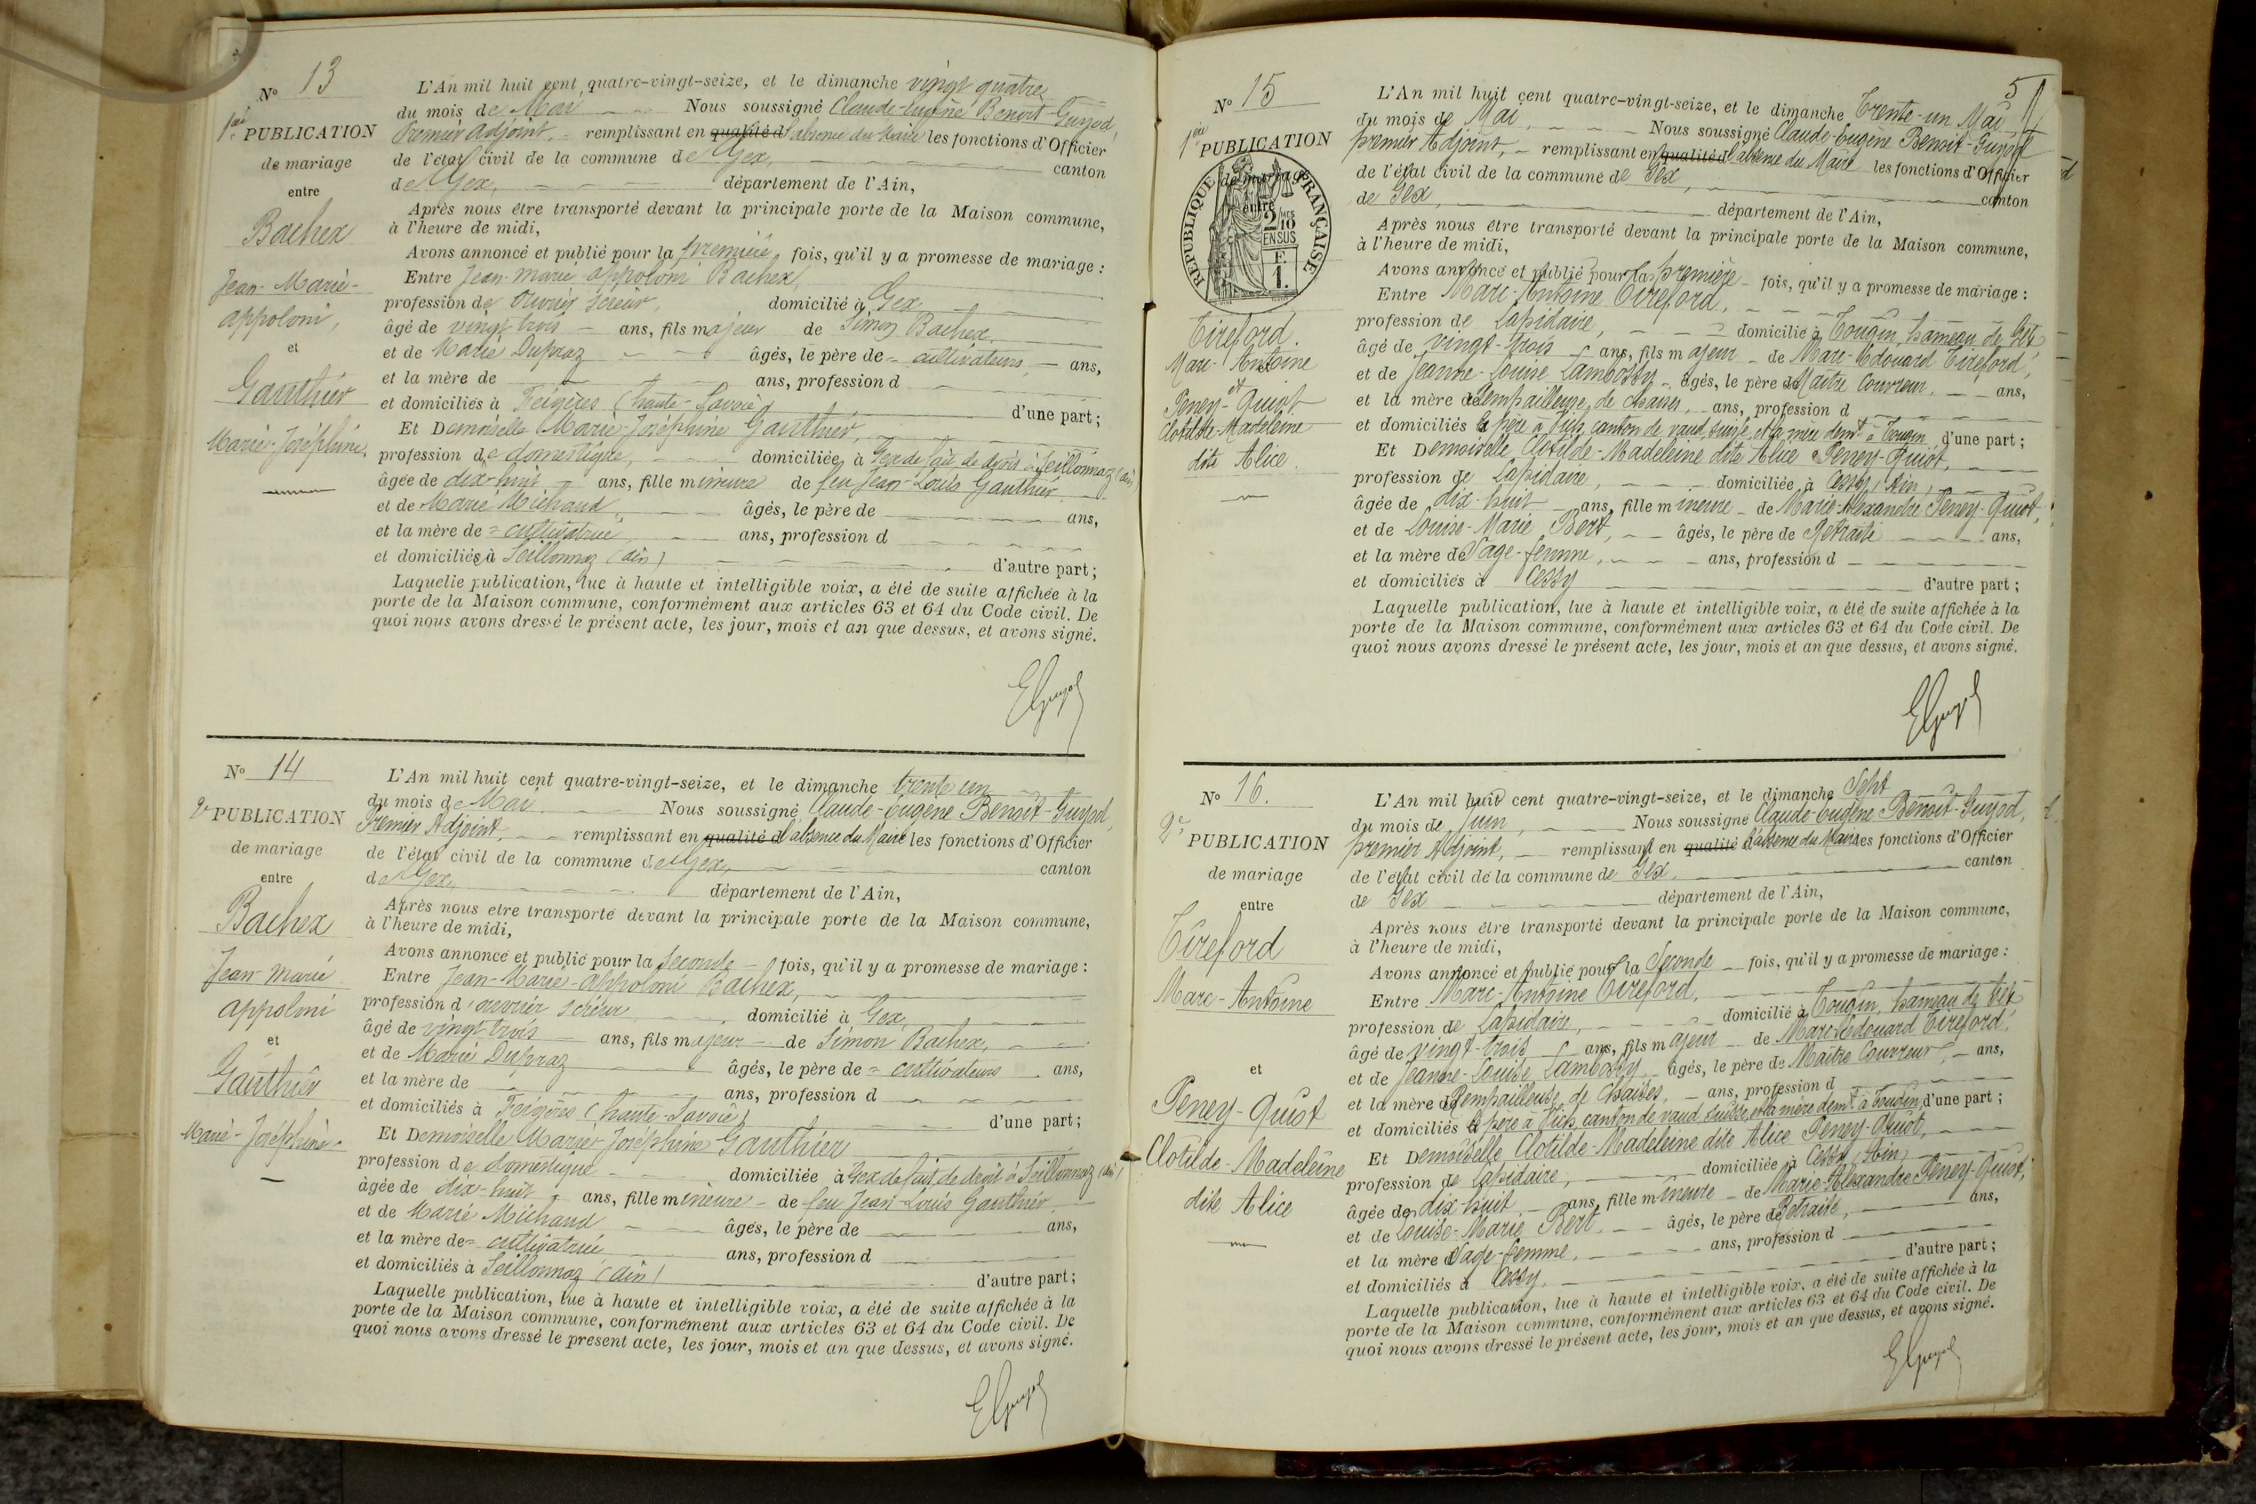 N° 13
1ère PUBLICATION
de mariage
entre
Bachex
Jean-Marie-
appoloni,
et
Gauthier
Marie-Joséphine,
L'An mil huit cent quatre-vingt-seize, et le dimanche vingt quatre
du mois de Mai Nous soussigné Claude-Eugène Benoit-Guyod,
Premier adjoint, remplissant en qualité d l'absence du Maire les fonctions d'Officier
de l'état civil de la commune de Gex, canton
de Gex, département de l'Ain,
Après nous être transporté devant la principale porte de la Maison commune,
à l'heure de midi,
Avons annoncé et publié pour la première fois, qu'il y a promesse de mariage :
Entre Jean-Marie-appoloni Bachex,
profession de ouvrier scieur, domicilié à Gex
âgé de vingt trois ans, fils majeur de Simon Bachex
et de Marie Dupraz âgés, le père de = cultivateurs, ans,
et la mère de ans, profession d
et domiciliés à Feigères (haute-Savoie) d'une part ;
Et Demoiselle Marie-Joséphine Gauthier,
profession de domestique, domiciliée à Gex de fait de droit à Seillonnaz (ain)
âgée de dix-huit ans, fille mineure de feu Jean-Louis Gauthier
et de Marie Michaud, âgés, le père de ans,
et la mère de = cultivatrice ans, profession d
et domiciliés à Seillonnaz (ain) d'autre part ;
Laquelle publication, lue à haute et intelligible voix, a été de suite affichée à la
porte de la Maison commune, conformément aux articles 63 et 64 du Code civil. De
quoi nous avons dressé le présent acte, les jour, mois et an que dessus, et avons signé.
EGuyod
N° 14
2e PUBLICATION
de mariage
entre
Bachex
Jean-Marie
appoloni
et
Gauthier
Marie-Joséphine
L'An mil huit cent quatre-vingt-seize, et le dimanche trente un
du mois de Mai Nous soussigné Claude-Eugène Benoit-Guyod,
Premier Adjoint, remplissant en qualité d l'absence du Maire les fonctions d'Officier
de l'état civil de la commune de Gex, canton
de Gex, département de l'Ain,
Après nous être transporté devant la principale porte de la Maison commune,
à l'heure de midi,
Avons annoncé et publié pour la seconde fois, qu'il y a promesse de mariage :
Entre Jean-Marie-appoloni Bachex,
profession d'ouvrier scieur domicilié à Gex,
âgé de vingt trois ans, fils majeur de Simon Bachex,
et de Marie Dupraz âgés, le père de = cultivateurs ans,
et la mère de ans, profession d
et domiciliés à Feigères (haute-Savoie) d'une part ;
Et Demoiselle Marie-Joséphine Gauthier
profession de domestique domiciliée à Gex de fait de droit à Seillonnaz (ain)
âgée de dix-huit ans, fille mineure de feu Jean-Louis Gauthier
et de Marie Michaud âgés, le père de ans,
et la mère de = cultivatrice ans, profession d
et domiciliés à Seillonnaz (ain) d'autre part ;
Laquelle publication, lue à haute et intelligible voix, a été de suite affichée à la
porte de la Maison commune, conformément aux articles 63 et 64 du Code civil. De
quoi nous avons dressé le présent acte, les jour, mois et an que dessus, et avons signé.
EGuyod
5
N° 15
1ère PUBLICATION
de mariage
entre
REPUBLIQUE FRANÇAISE
2/10 MES
EN SUS
F.
1.
Tireford.
Marc-Antoine
et
Peney-Quiot
Clotilde-Madeleine
dite Alice.
L'An mil huit cent quatre-vingt-seize, et le dimanche Trente-un Mai
du mois de Mai, Nous soussigné Claude-Eugène Benoit-Guyod
premier Adjoint, remplissant en qualité d l'absence du Maire les fonctions d'Officier
de l'état civil de la commune de Gex, canton
de Gex, département de l'Ain,
Après nous être transporté devant la principale porte de la Maison commune,
à l'heure de midi,
Avons annoncé et publié pour la première fois, qu'il y a promesse de mariage :
Entre Marc-Antoine Tireford,
profession de Lapidaire, domicilié à Tougin, hameau de Gex
âgé de vingt-trois ans, fils majeur de Marc-Edouard Tireford,
et de Jeanne-Louise Lambossy âgés, le père de Maître Couvreur, ans,
et la mère de Rempailleuse de chaises, ans, profession d
et domiciliés le père à Vich, canton de vaud, suisse, et la mère demt à Tougin d'une part ;
Et Demoiselle Clotilde-Madeleine dite Alice Peney-Quiot,
profession de Lapidaire, domiciliée à Cessy, Ain,
âgée de dix-huit ans, fille mineure de Marie-Alexandre Peney-Quiot,
et de Louise-Marie Bert, âgés, le père de Retraité ans,
et la mère de Sage-femme, ans, profession d
et domiciliés à Cessy d'autre part ;
Laquelle publication, lue à haute et intelligible voix, a été de suite affichée à la
porte de la Maison commune, conformément aux articles 63 et 64 du Code civil. De
quoi nous avons dressé le présent acte, les jour, mois et an que dessus, et avons signé.
EGuyod
N° 16.
2e PUBLICATION
de mariage
entre
Tireford
Marc-Antoine
et
Peney-Quiot
Clotilde-Madeleine
dite Alice
L'An mil huit cent quatre-vingt-seize, et le dimanche Sept
du mois de Juin, Nous soussigné Claude-Eugène Benoit-Guyod,
premier Adjoint, remplissant en qualité d l'absence du Maire les fonctions d'Officier
de l'état civil de la commune de Gex, canton
de Gex département de l'Ain,
Après nous être transporté devant la principale porte de la Maison commune,
à l'heure de midi,
Avons annoncé et publié pour la Seconde fois, qu'il y a promesse de mariage :
Entre Marc-Antoine Tireford,
profession de Lapidaire, domicilié à Tougin, hameau de Gex
âgé de vingt-trois ans, fils majeur de Marc-Edouard Tireford,
et de Jeanne-Louise Lambossy âgés, le père de Maître Couvreur, ans,
et la mère de Rempailleuse de Chaises, ans, profession d
et domiciliés le père à Vich, canton de vaud, suisse, et la mère demt à Tougin, d'une part ;
Et Demoiselle Clotilde-Madeleine dite Alice Peney-Quiot,
profession de Lapidaire, domiciliée à Cessy (Ain)
âgée de dix-huit ans, fille mineure de Marie-Alexandre Peney-Quiot,
et de Louise-Marie Bert, âgés, le père de Retraité, ans,
et la mère de Sage-femme, ans, profession d
et domiciliés à Cessy, d'autre part ;
Laquelle publication, lue à haute et intelligible voix, a été de suite affichée à la
porte de la Maison commune, conformément aux articles 63 et 64 du Code civil. De
quoi nous avons dressé le présent acte, les jour, mois et an que dessus, et avons signé.
EGuyod